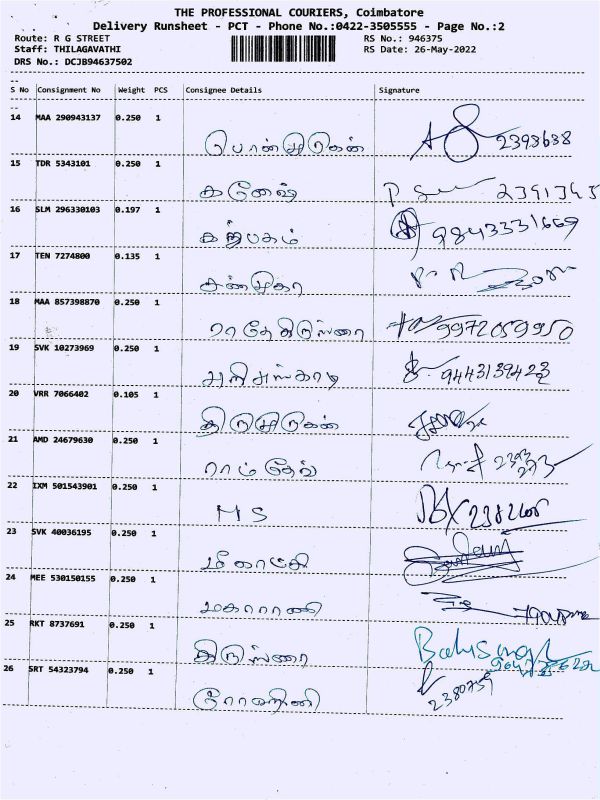 THE PROFESSIONAL COURIERS, Coimbatore
Delivery Runsheet - PCT - Phone No.:0422-3505555 - Page No.:2
Route: R G STREET RS No.: 946375
Staff: THILAGAVATHI RS Date: 26-May-2022
DRS No.: DCJB94637502
S No Consignment No Weight PCS Consignee Details Signature
14 MAA 290943137 0.250 1
பொன்முருகன் 2393638
15 TDR 5343101 0.250 1
கணேஷ் 2391345
16 SLM 296330103 0.197 1
கற்பகம் 9843331669
17 TEN 7274800 0.135 1
சண்முகா
18 MAA 857398870 0.250 1
9972059950
19 SVK 10273969 0.250 1
அரிசுஸ்காடி 9443139423
20 VRR 7066402 0.105 1
திருமுருகன்
21 AMD 24679630 0.250 1
ராம்தேவ் 2393
273
22 IXM 501543901 0.250 1
M S
23 SVK 40036195 0.250 1
மீனாட்சி
24 MEE 530150155 0.250 1
மகாராணி
25 RKT 8737691 0.250 1
26 SRT 54323794 0.250 1
2380759